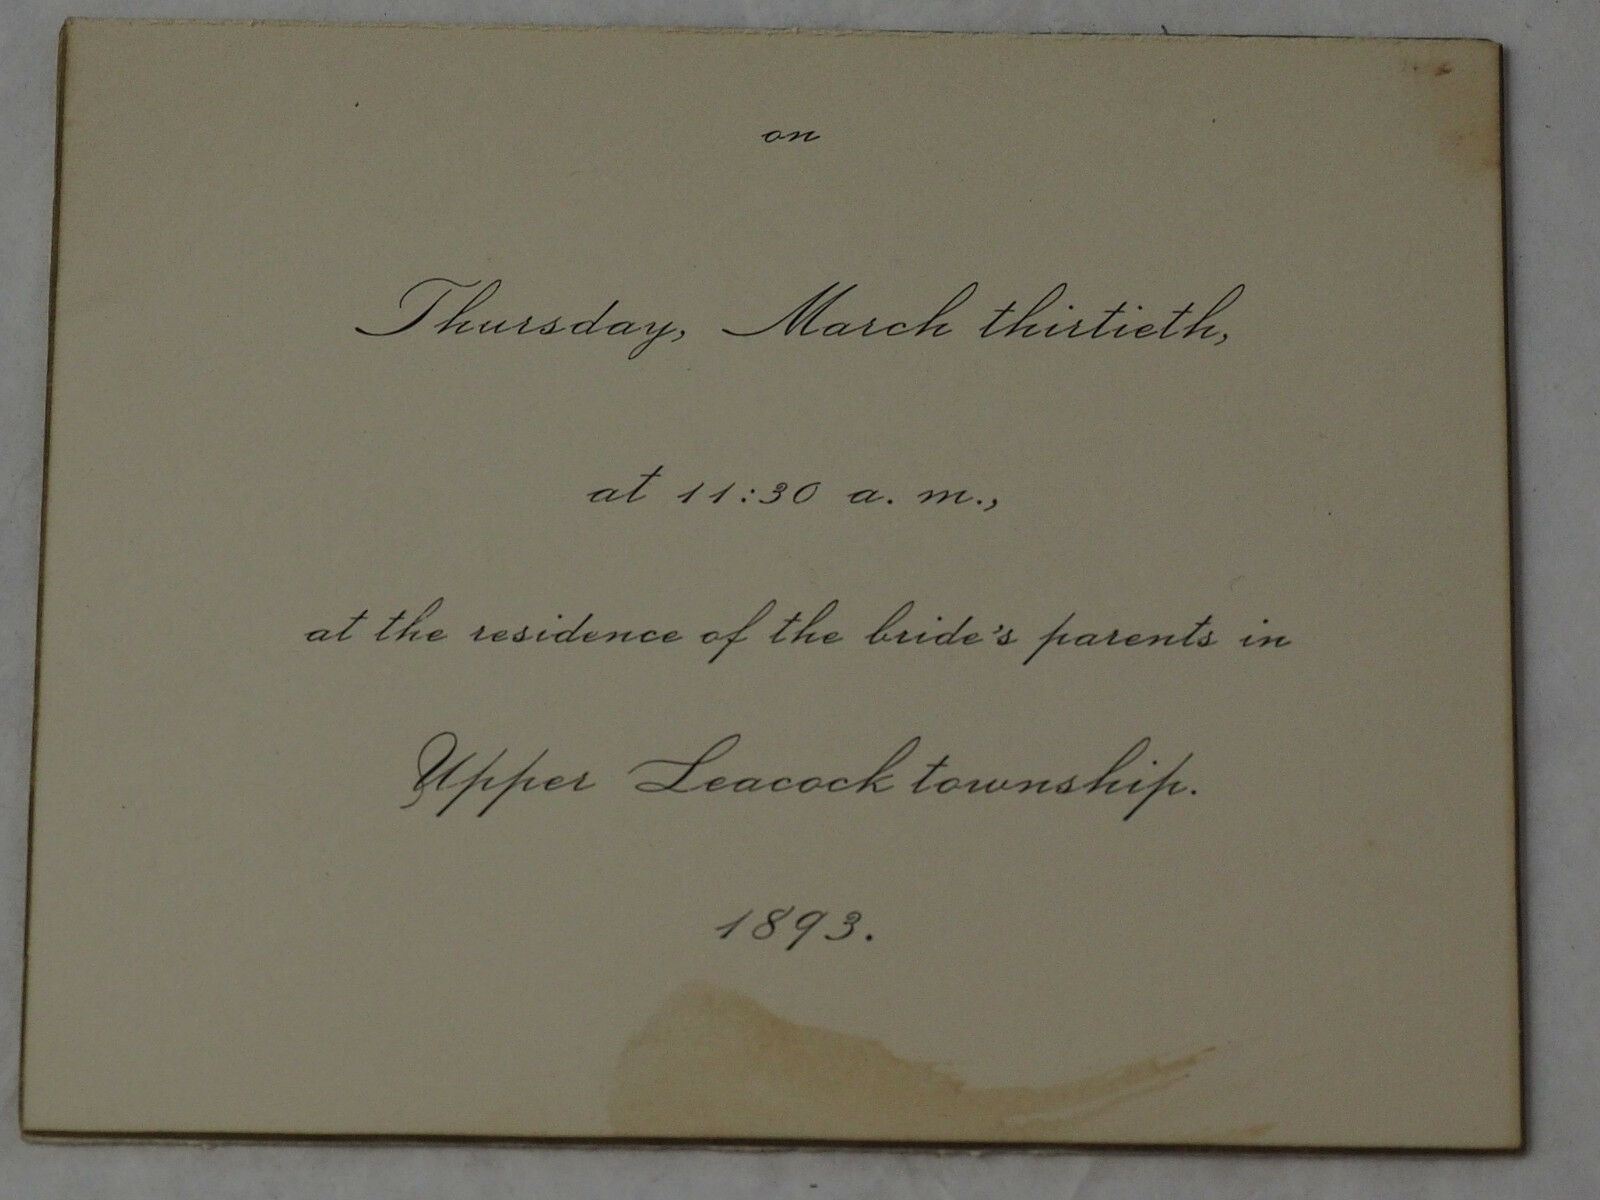 on
Thursday, March thirtieth,
at 11:30 a. m.,
at the residence of the bride's parents in
Upper Leacock township.
1893.